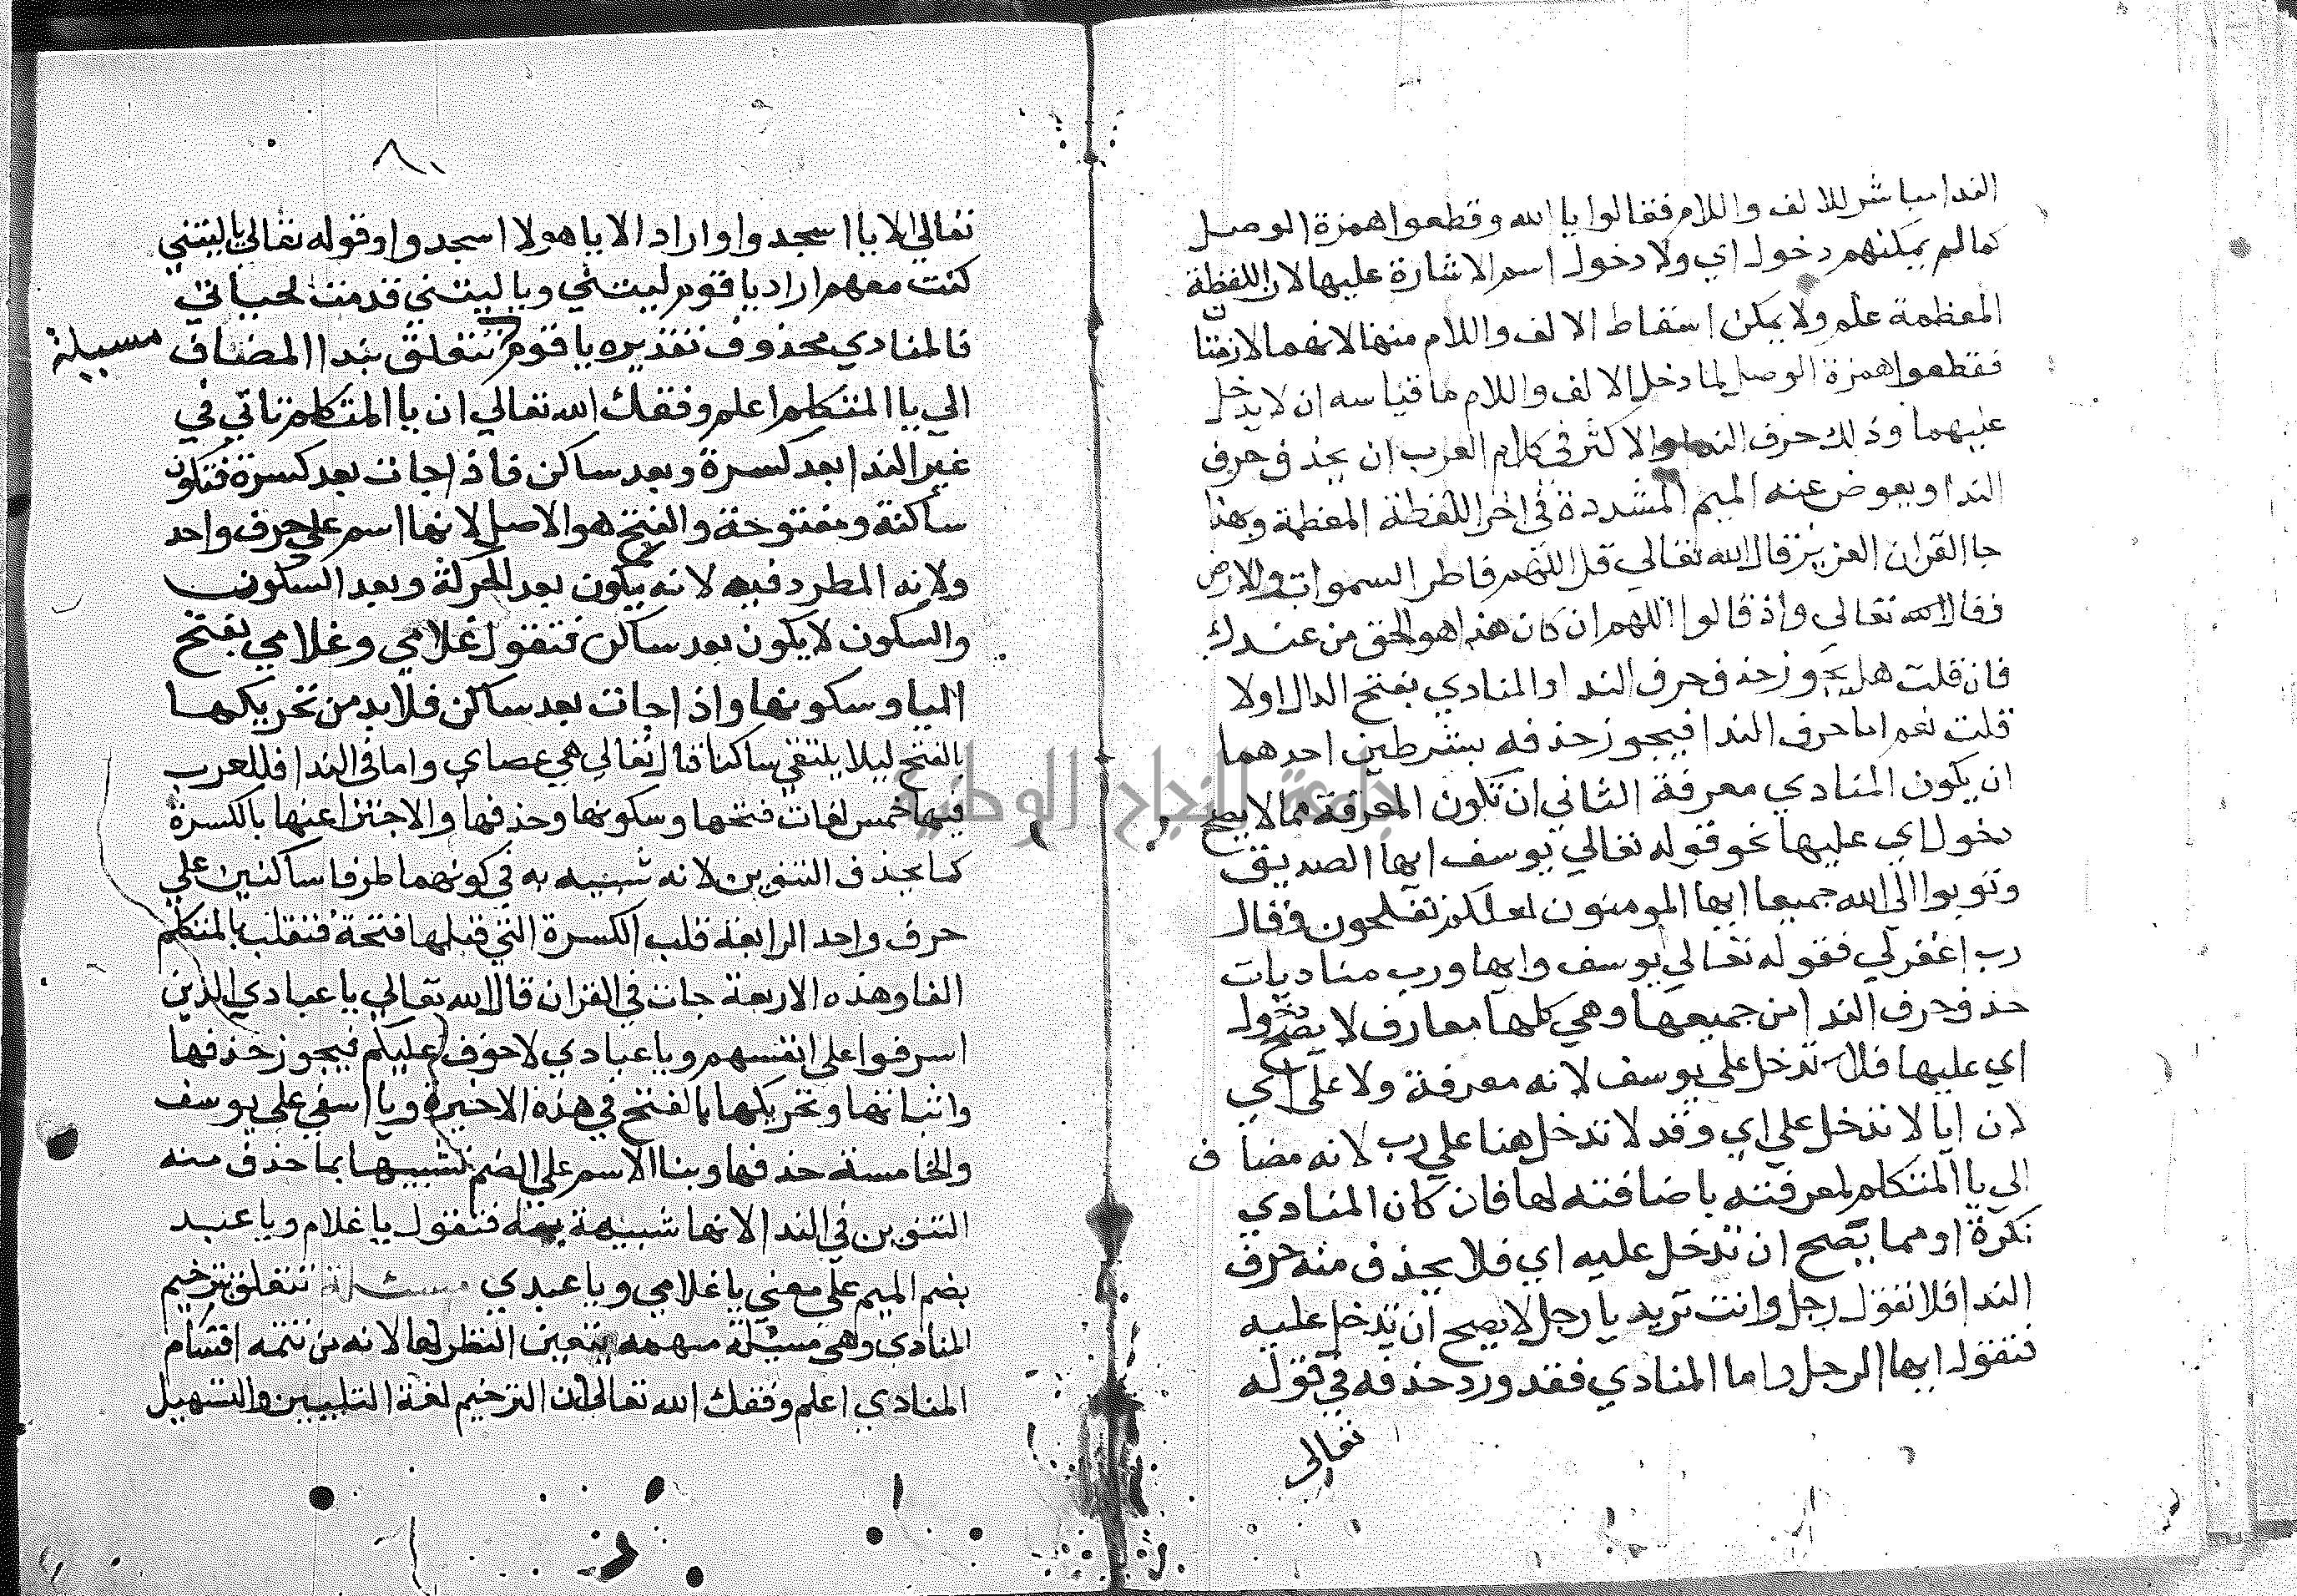 الندا مباشر للالف واللام فقالوا يا الله وقطعوا همزة الوصل
كما لم يمكنهم دخول اي ولا دخول اسم الاشارة عليها لان اللفظة
المعظمة علم ولا يمكن اسقاط الالف واللام منها لانهما لازمتا
فقطعوا همزة الوصل لما دخل الالف واللام ما قياسه ان لا يدخل
عليهما وذلك حرف الندا والاكثر في كلام العرب ان يحذف حرف
الندا ويعوض عنه الميم المشددة في اخر اللفظة المعظمة وبهذا
جا القران العزيز قال الله تعالي قل اللهم فاطر السموات والارض
فقال الله تعالي واذ قالوا اللهم ان كان هذا هو الحق من عندك
فان قلت هل يجوز حذف حرف الندا او المنادي بفتح الدال اولا
قلت نعم اما حرف الندا فيجوز حذفه بشرطين احدهما
ان يكون المنادي معرفة الثاني ان تكون المعرفة مما لا يصح
دخول اي عليها نحو قوله تعالي يوسف ايها الصديق
وتوبوا الي الله جميعا ايها المومنون لعلكم تفلحون وقال
رب اغفر لي فقوله تعالي يوسف وايها ورب مناديات
حذف حرف الندا من جميعها وهي كلها معارف لا يصح دخول
اي عليها فلا تدخل علي يوسف لانه معرفة ولا علي اي
لان ايا لا تدخل علي اي وقد لا تدخل هنا علي رب لانه مضاف
الي يا المتكلم لمعرفته باضافته لها فان كان المنادي
نكرة او مما يصح ان تدخل عليه اي فلا يحذف منه حرف
الندا فلا تقول رجل وانت تريد يا رجل لا يصح ان تدخل عليه
فتقول ايها الرجل واما المنادي فقد ورد حذفه في قوله
تعالي
٨٠
تعالي الا يا اسجدوا واراد الا يا هولا اسجدوا وقوله تعالي يا ليتني
كنت معهم اراد يا قوم ليتني ويا ليتني قدمت لحياتي
فالمنادي محذوف تقديره يا قوم تتعلق بندا المضاف
مسيلة
الي يا المتكلم اعلم وفقك الله تعالي ان يا المتكلم تاتي في
غير الندا بعد كسرة وبعد ساكن فاذا جات بعد كسرة فتكون
ساكنة ومفتوحة والفتح هو الاصل لانها اسم علي حرف واحد
ولانه المطرد فيه لانه يكون بعد الحركة وبعد السكون
والسكون لا يكون بعد ساكن فتقول غلامي وغلامي بفتح
اليا وسكونها واذا جات بعد ساكن فلابد من تحريكها
بالفتح ليلا يلتقي ساكنا قال تعالي هي عصاي واما في الندا فللعرب
فيها خمس لغات فتحها وسكونها وحذفها والاجتزا عنها بالكسرة
كما يحذف التنوين لانه شبيه به في كونهما طرفا ساكنين علي
حرف واحد الرابعة قلب الكسرة التي قبلها فتحة فتقلب يا المتكلم
الفا وهذه الاربعة جات في القران قال الله تعالي يا عبادي الذين
اسرفوا علي انفسهم ويا عبادي لا خوف عليكم فيجوز حذفها
واثباتها وتحريكها بالفتح في هذه الاخيرة ويا اسفي علي يوسف
والخامسة حذفها وبنا الاسم علي الضم تشبيها بما حذف منه
التنوين في الندا لانها شبيهة به فتقول يا غلام ويا عبد
بضم الميم علي معني يا غلامي ويا عبدي مسئلة تتعلق بترخيم
المنادي وهي مسئلة مهمه يتعين النظر لها لانه من تتمه اقسام
المنادي اعلم وفقك الله تعالي ان الترخيم لغة التليين والتسهيل